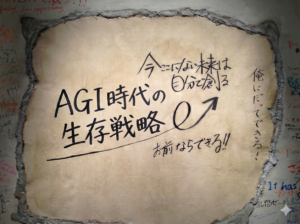 今ここにない未来は
自分で創る
AGI時代の
生存戦略
お前ならできる!!
俺にだってできる!
It has